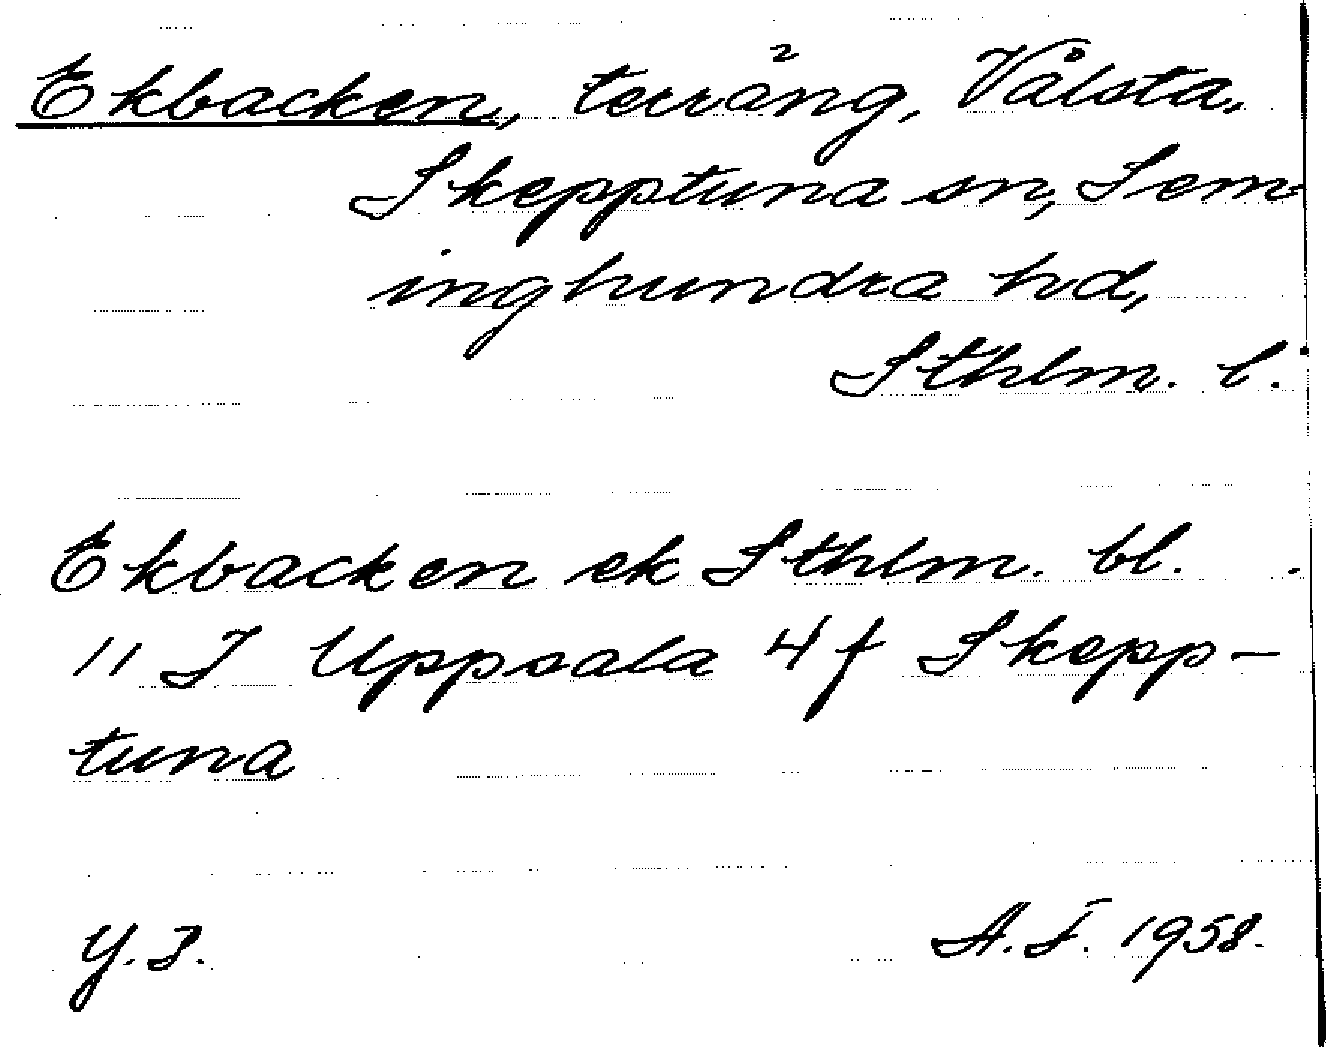 Ekbacken, terräng, Vålsta,
Skepptuna sn, Sem-
inghundra hd,
Sthlm. l.
Ekbacken ek Sthlm. bl.
11 I Uppsala 4 f Skepp-
tuna
A. F. 1958.